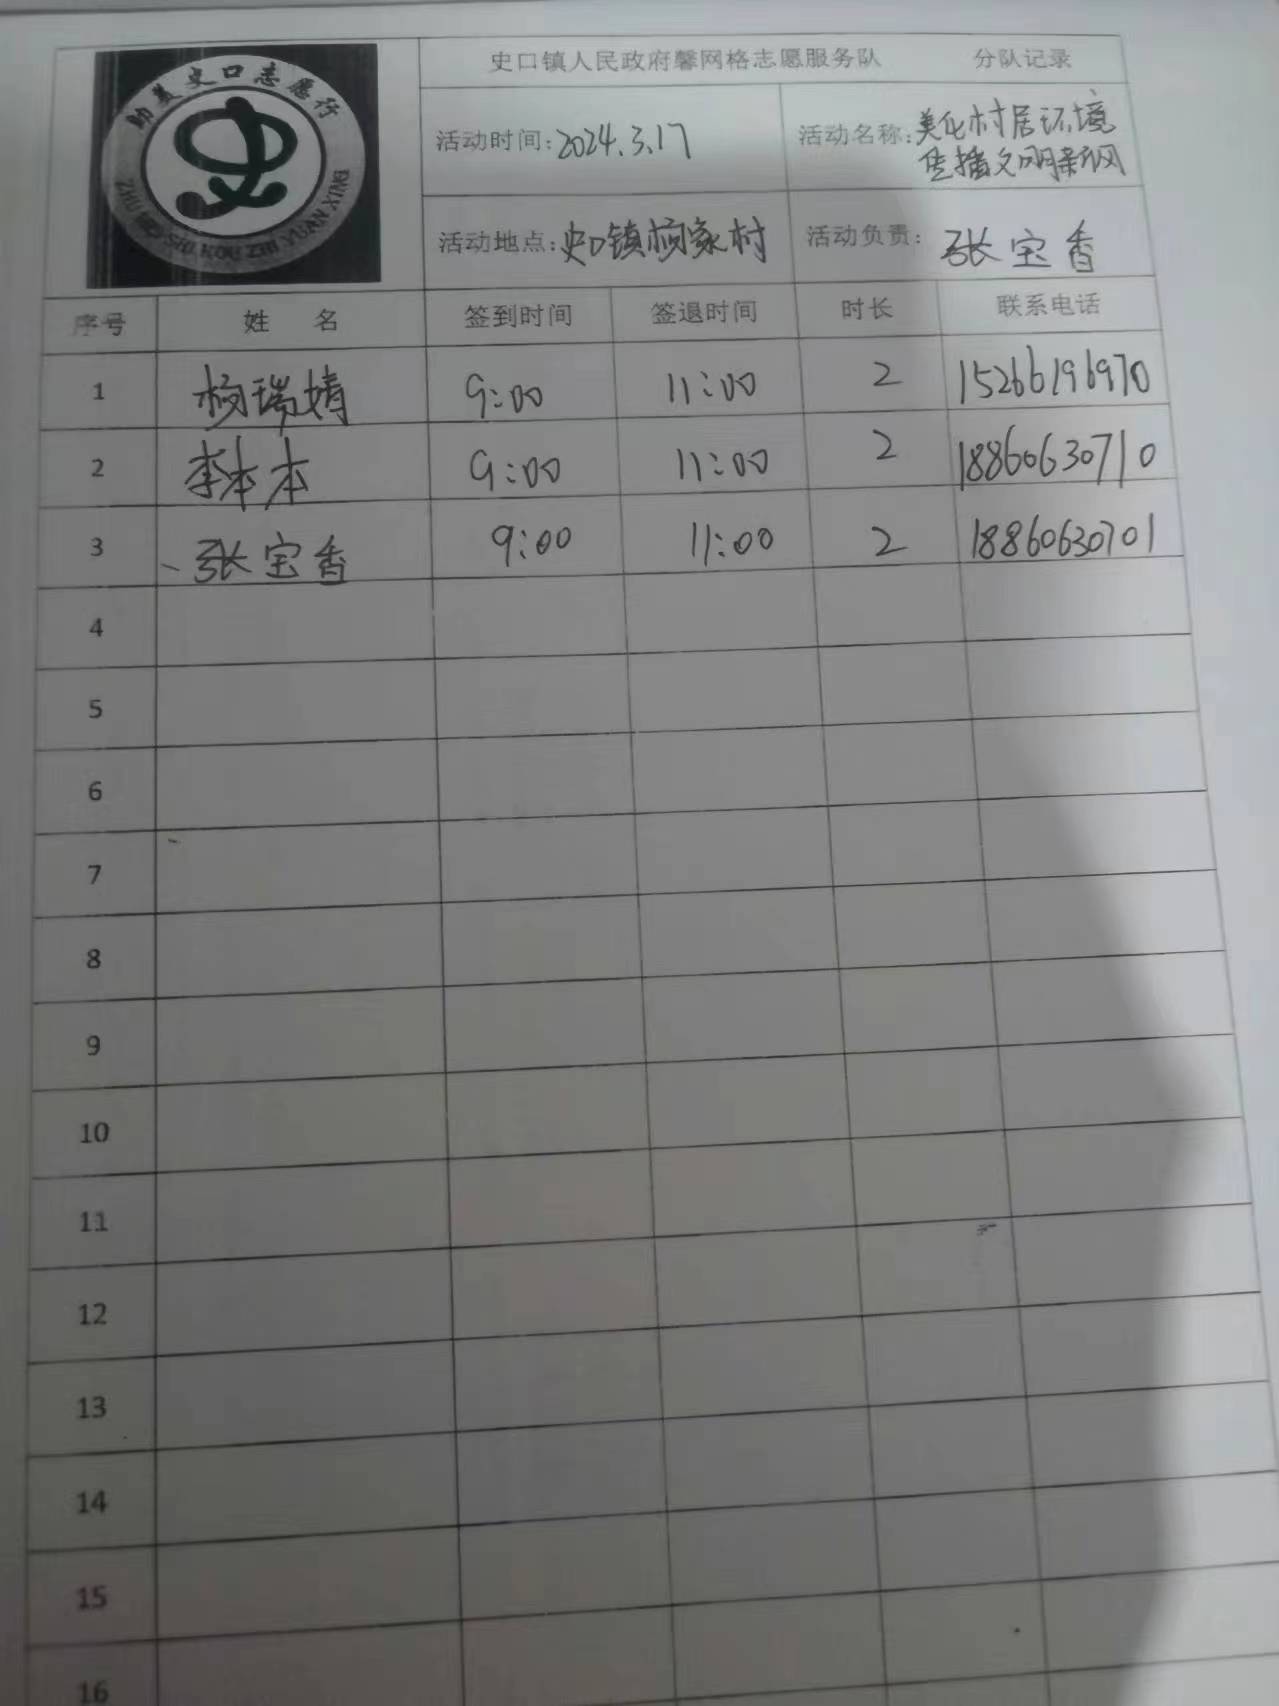 助美史口志愿行
史口镇人民政府馨网格志愿服务队 分队记录
活动时间:2024.3.17 活动名称:美化村居环境
传播文明新风
活动地点:史口镇杨家村 活动负责:张宝香
序号 姓 名 签到时间 签退时间 时长 联系电话
1 杨瑞婧 9:00 11:00 2 15266196970
2 李本本 9:00 11:00 2 18860630710
3 张宝香 9:00 11:00 2 18860630701
4
5
6
7
8
9
10
11
12
13
14
15
16